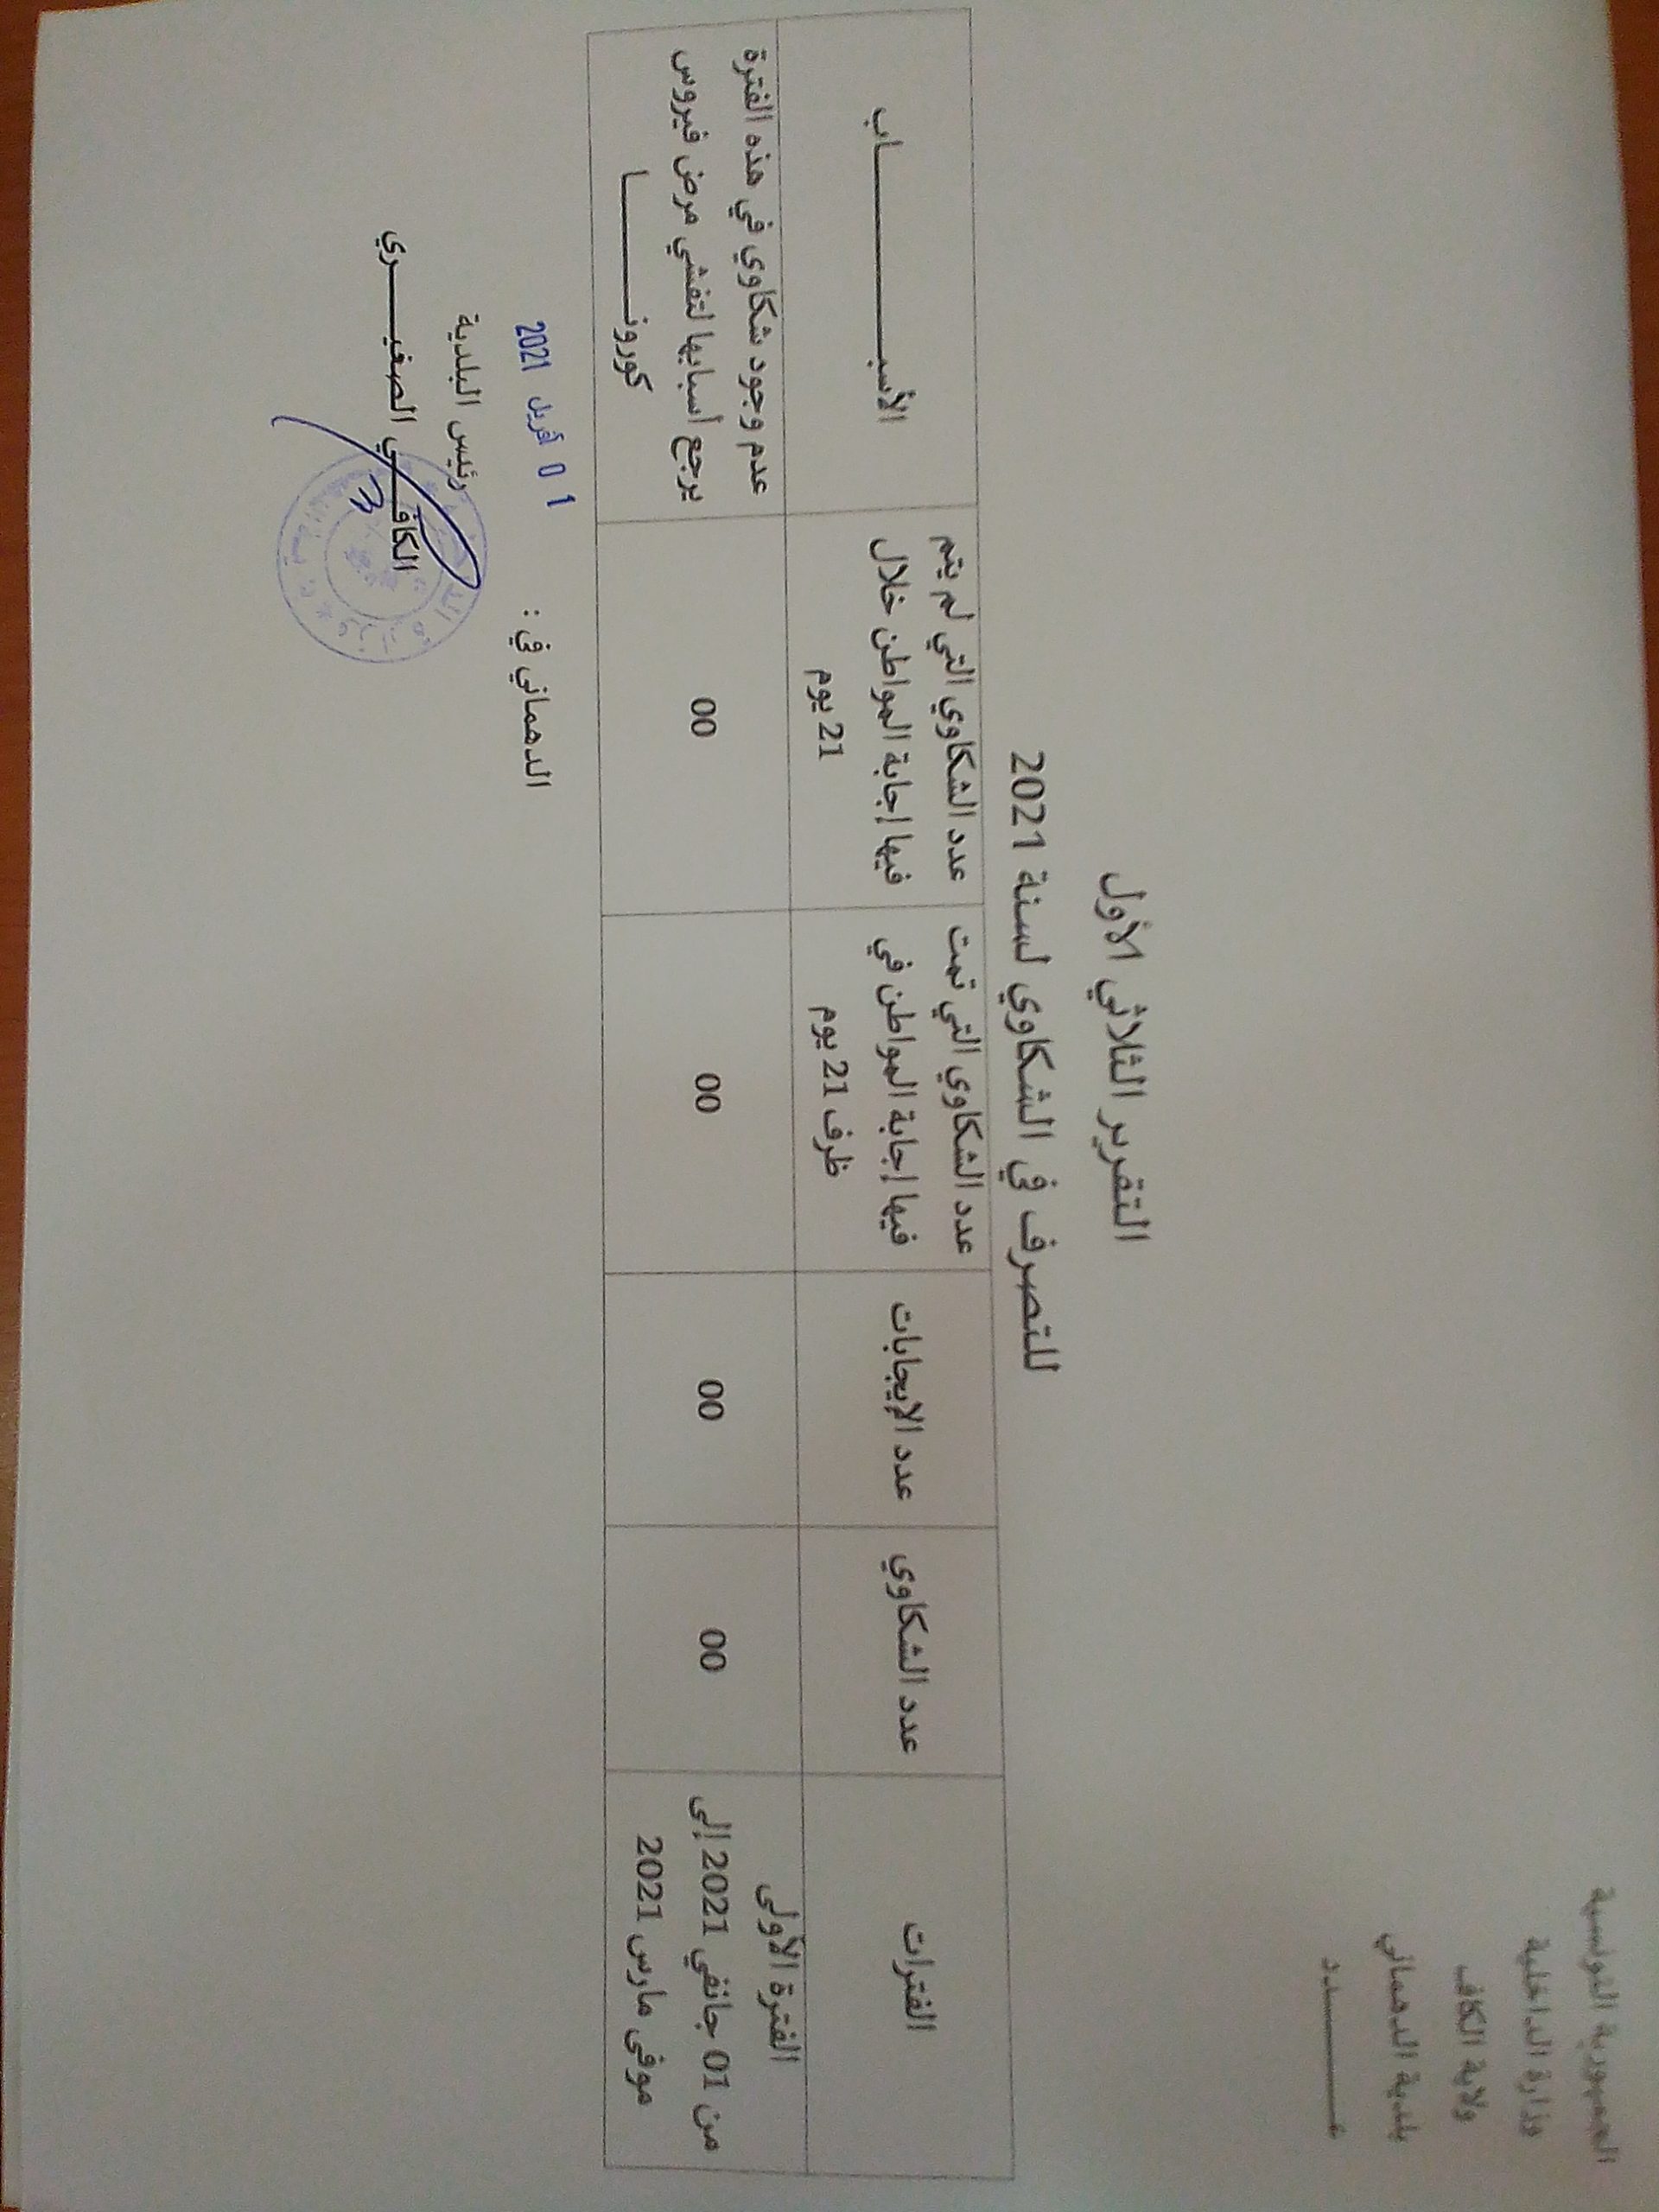 الجمهورية التونسية
وزارة الداخلية
ولاية الكاف
بلدية الدهماني
عـــــــــدد
التقرير الثلاثي الأول
للتصرف في الشكاوي لسنة 2021
الفترات
عدد الشكاوي
عدد الإيجابات
عدد الشكاوي التي تمت
فيها إجابة المواطن في
ظرف 21 يوم
عدد الشكاوي التي لم يتم
فيها إجابة المواطن خلال
21 يوم
الأسبـــــــــــــــاب
الفترة الأولى
من 01 جانفي 2021 إلى
موفى مارس 2021
00
00
00
00
عدم وجود شكاوي في هذه الفترة
يرجع أسبابها لتفشي مرض فيروس
كورونـــــــــا
الدهماني في : 01 أفريل 2021
رئيس البلدية
الكافـــي الصغيـــــري